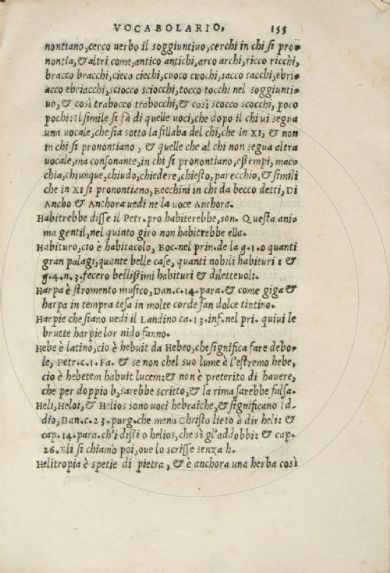 VOCABOLARIO. 155
nontiano, cerco uerbo il soggiuntiuo, cerchi in chi si pro=
nontia, & altri come, antico antichi, arco archi, ricco ricchi,
bracco bracchi, cieco ciechi, cuoco cuochi, sacco sacchi, ebri=
acco ebriacchi, sciocco sciocchi, tocco tocchi nel soggiunti=
uo, & così trabocco trabocchi, & così scocco scocchi, poco
pochi: Il simile si fà di quelle uoci, che dopo il chi ui segua
una uocale, che sia sotto la sillaba del chi, che in XI, & non
in chi si pronontiano, & quelle che al chi non segua altra
uocale, ma consonante, in chi si prononti­ano, essempi, mac=
chia, chiunque, chiudo, chiedere, chiesto, parecchio, & simili
che in XI si prononti­eno, Becchini in chi da becco detti, Di
Ancho & Anchora uedi ne la uoce Anchora.
Habitrebbe disse il Petr. pro habiterebbe, son. Questa ani=
ma gentil, nel quinto giro non habitrebbe ella.
Habituro, cio è habitacolo, Boc. nel prin. de la g. 1. o quanti
gran palagi, quante belle case, quanti nobili habituri &
g. 4. n. 3. fecero bellissimi habituri & diletteuoli.
Harpa è stromento musico, Dan. c. 14. para. & come giga &
harpa in tempra tesa in molte corde fan dolce tintino.
Harpie che siano uedi il Landino ca. 13. inf. nel pri. quiui le
brutte harpie lor nido fanno.
Hebe è latino, cio è hebuit da Hebeo, che significa fare debo=
le, Petr. c. 1. Fa. & se non chel suo lume è l'estremo hebe,
cio è hebetem habuit lucem: & non è preterito di hauere,
che per doppio b, sarebbe scritto, & la rima sarebbe falsa.
Heli, Helos, & Helios sono uoci hebraiche, & significano Id=
dio, Dan. c. 23. purg. che meno Christo lieto è dir heli: &
cap. 14. para. ch'i dissi o helios, che sì gl'addobbi: & cap.
26. Eli si chiamo poi, oue lo scrisse senza h.
Helitropia è spetie di pietra, & è anchora una herba così